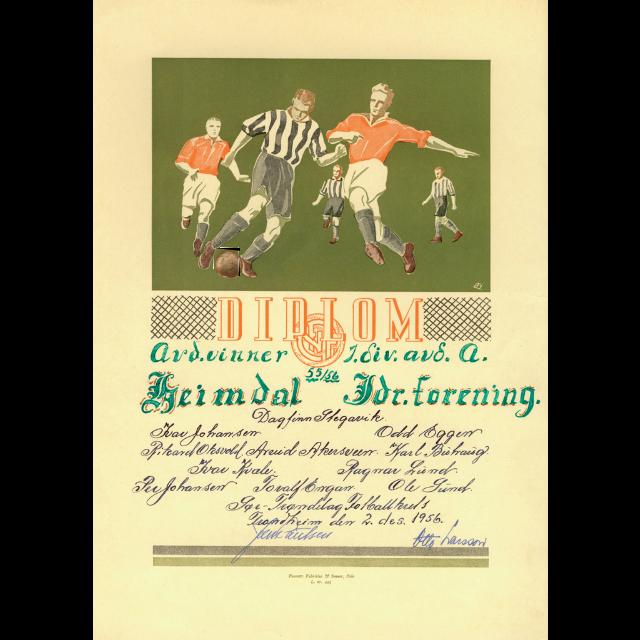 DIPLOM
Avd.vinner 1.div. avd. A.
55/56
Heimdal Idr.forening.
Dagfinn Stegavik
Ivar Johansen Odd Eggen
Rikard Olsvold Arvid Akersveen Karl
Ivar Kvale. Ragnar Lund.
Per Johansen Toralf Engan. Ole Lund.
Sør-Trøndelag Fotballkrets
Trondheim den 2. des. 1956.
Otto Larsson